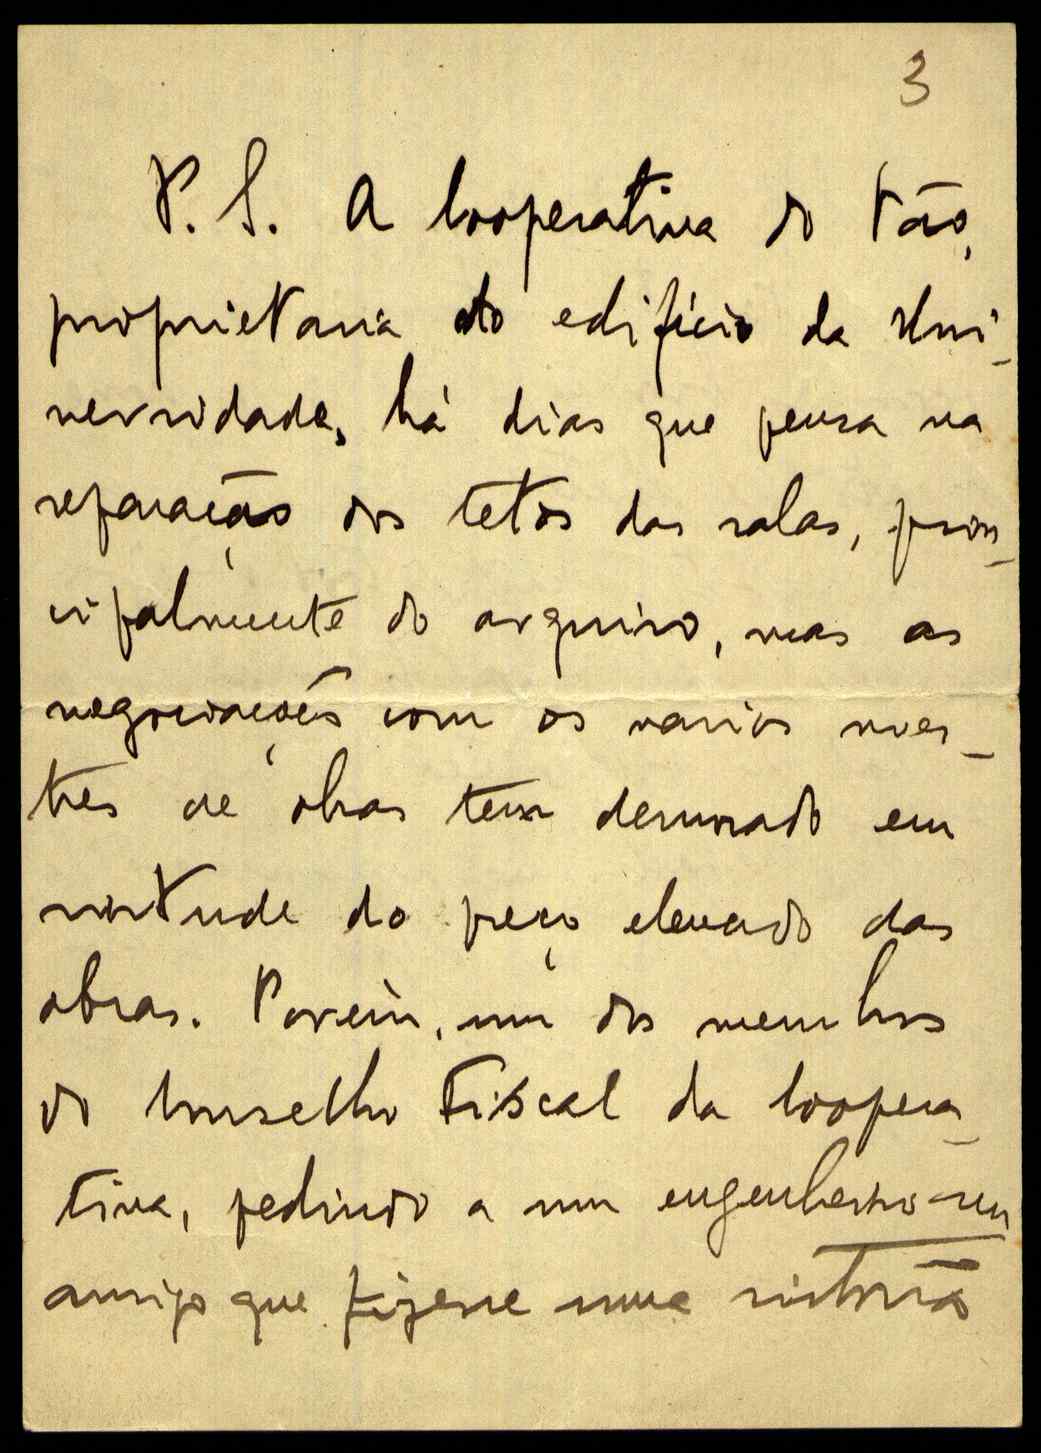 3
P. S. A Cooperativa do Pão,
proprietaria do edifício da Uni-
versidade, há dias que pensa na
reparação dos tetos das salas, prin-
cipalmente do arquivo, mas as
negociações com os varios mes-
tres de obras tem demorado em
virtude do preço elevado das
obras. Porém, um dos membros
do Conselho Fiscal da Coopera-
tiva, pedindo a um engenheiro seu
amigo que fizesse uma vistoria